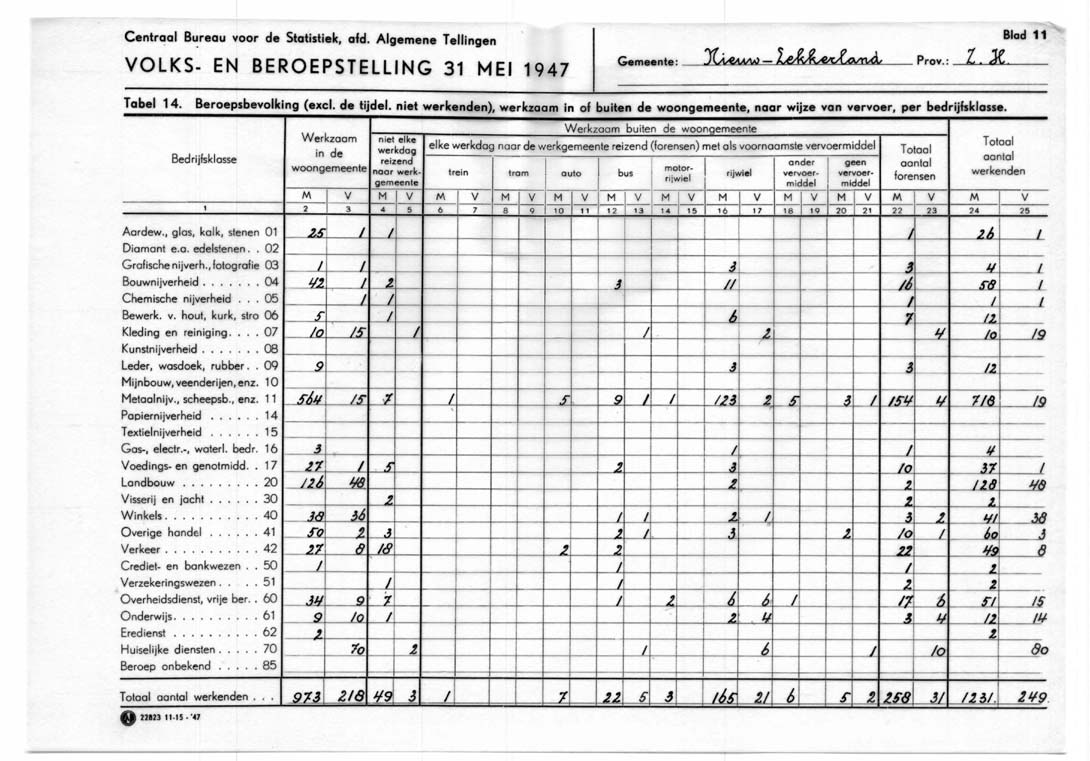 Centraal Bureau voor de Statistiek, afd. Algemene Tellingen
VOLKS- EN BEROEPSTELLING 31 MEI 1947
Gemeente: Nieuw-Lekkerland Prov.: Z. H.
Blad 11
Tabel 14. Beroepsbevolking (excl. de tijdel. niet werkenden), werkzaam in of buiten de woongemeente, naar wijze van vervoer, per bedrijfsklasse.
Bedrijfsklasse
Werkzaam
in de
woongemeente
Werkzaam buiten de woongemeente
niet elke
werkdag
reizend
naar werk-
gemeente
elke werkdag naar de werkgemeente reizend (forensen) met als voornaamste vervoermiddel
trein
tram
auto
bus
motor-
rijwiel
rijwiel
ander
vervoer-
middel
geen
vervoer-
middel
Totaal
aantal
forensen
Totaal
aantal
werkenden
M V M V M V M V M V M V M V M V M V M V M V M V
1 2 3 4 5 6 7 8 9 10 11 12 13 14 15 16 17 18 19 20 21 22 23 24 25
Aardew., glas, kalk, stenen 01 25 1 1 1 26 1
Diamant e.a. edelstenen . . 02
Grafische nijverh., fotografie 03 1 1 3 3 4 1
Bouwnijverheid . . . . . . . 04 42 1 2 3 11 16 58 1
Chemische nijverheid . . . 05 1 1 1 1 1
Bewerk. v. hout, kurk, stro 06 5 1 6 7 12
Kleding en reiniging . . . . 07 10 15 1 1 2 4 10 19
Kunstnijverheid . . . . . . . 08
Leder, wasdoek, rubber . . 09 9 3 3 12
Mijnbouw, veenderijen, enz. 10
Metaalnijv., scheepsb., enz. 11 564 15 7 1 5 9 1 1 123 2 5 3 1 154 4 718 19
Papiernijverheid . . . . . . 14
Textielnijverheid . . . . . . 15
Gas-, electr.-, waterl. bedr. 16 3 1 1 4
Voedings- en genotmidd. . 17 27 1 5 2 3 10 37 1
Landbouw . . . . . . . . . 20 126 48 2 2 128 48
Visserij en jacht . . . . . . 30 2 2 2
Winkels . . . . . . . . . . . 40 38 36 1 1 2 1 3 2 41 38
Overige handel . . . . . . 41 50 2 3 2 1 3 2 10 1 60 3
Verkeer . . . . . . . . . . . 42 27 8 18 2 2 22 49 8
Crediet- en bankwezen . . 50 1 1 1 2
Verzekeringswezen . . . . . 51 1 1 2 2
Overheidsdienst, vrije ber. . 60 34 9 7 1 2 6 6 1 17 6 51 15
Onderwijs . . . . . . . . . . 61 9 10 1 2 4 3 4 12 14
Eredienst . . . . . . . . . . 62 2 2
Huiselijke diensten . . . . . 70 70 2 1 6 1 10 80
Beroep onbekend . . . . . 85
Totaal aantal werkenden . . . 973 218 49 3 1 7 22 5 3 165 21 6 5 2 258 31 1231 249
22823 11-15 - '47